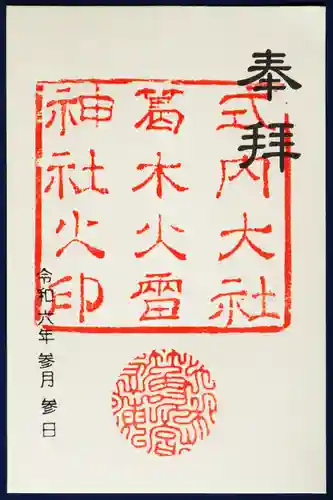 奉拝
式内大社
葛木火雷
神社火印
令和六年 参月 参日